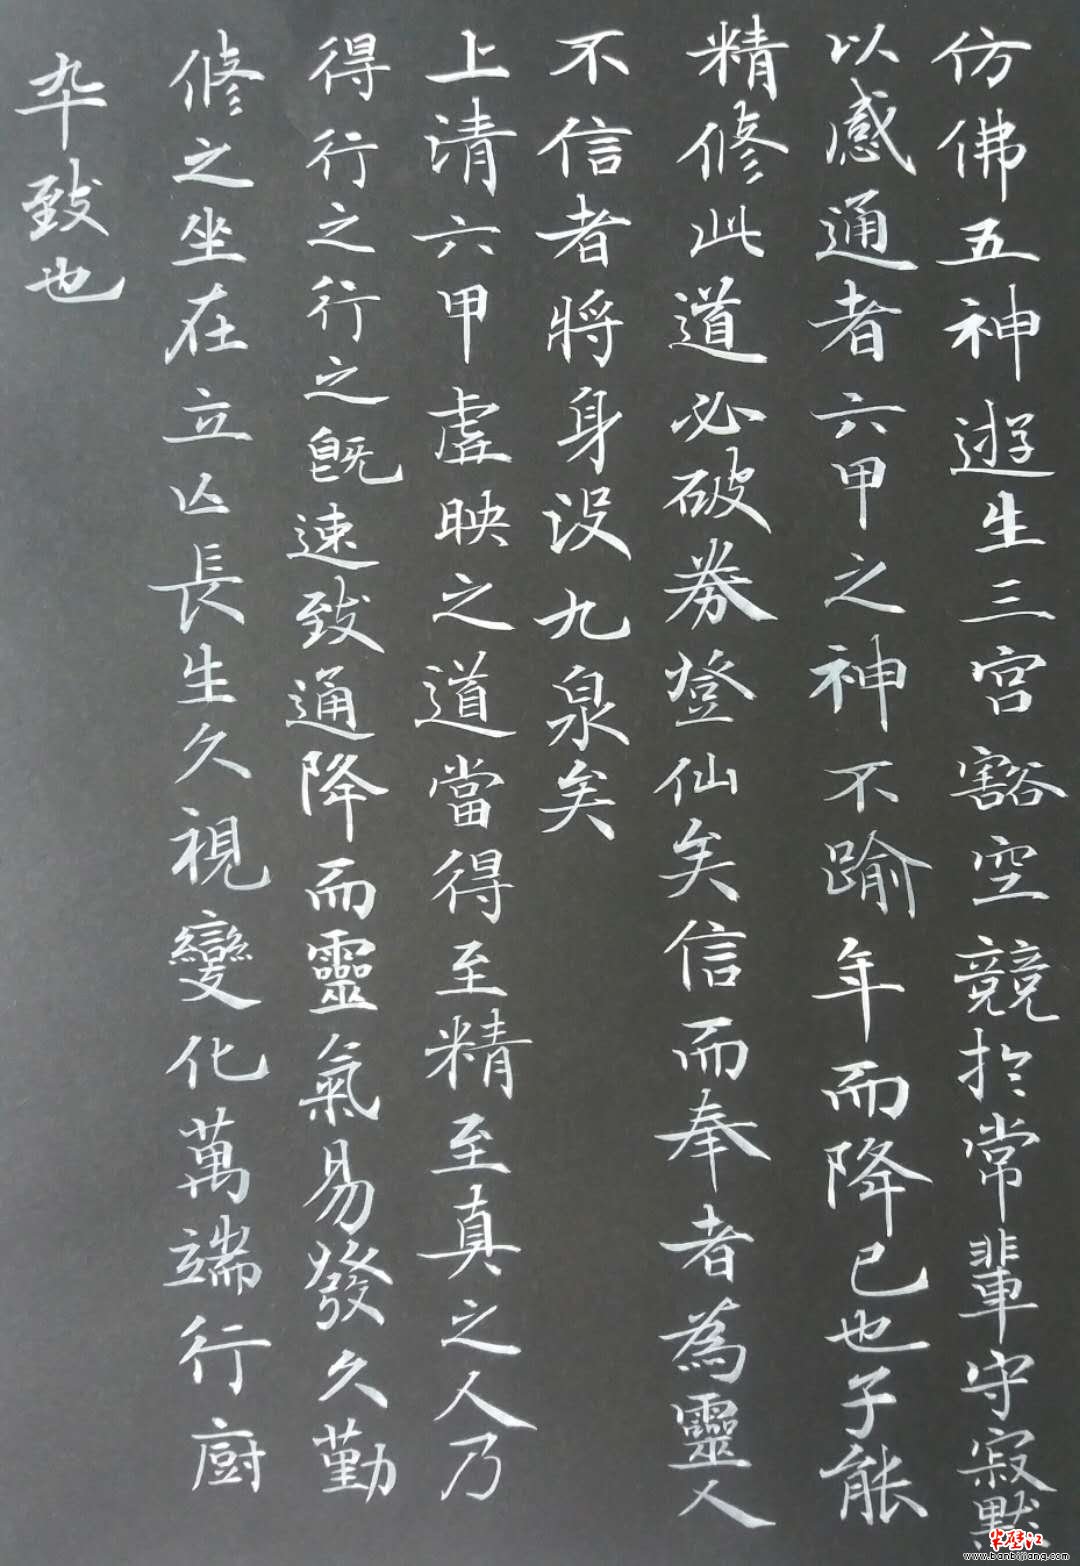 仿佛五神遊生三宮豁空競於常輩守寂默
以感通者六甲之神不踰年而降已也子能
精修此道必破券登仙矣信而奉者為靈人
不信者將身没九泉矣
上清六甲虛映之道當得至精至真之人乃
得行之行之既速致通降而靈氣易發久勤
修之坐在立亡長生久視變化萬端行廚
卒致也
半壁江
www.banbijiang.com